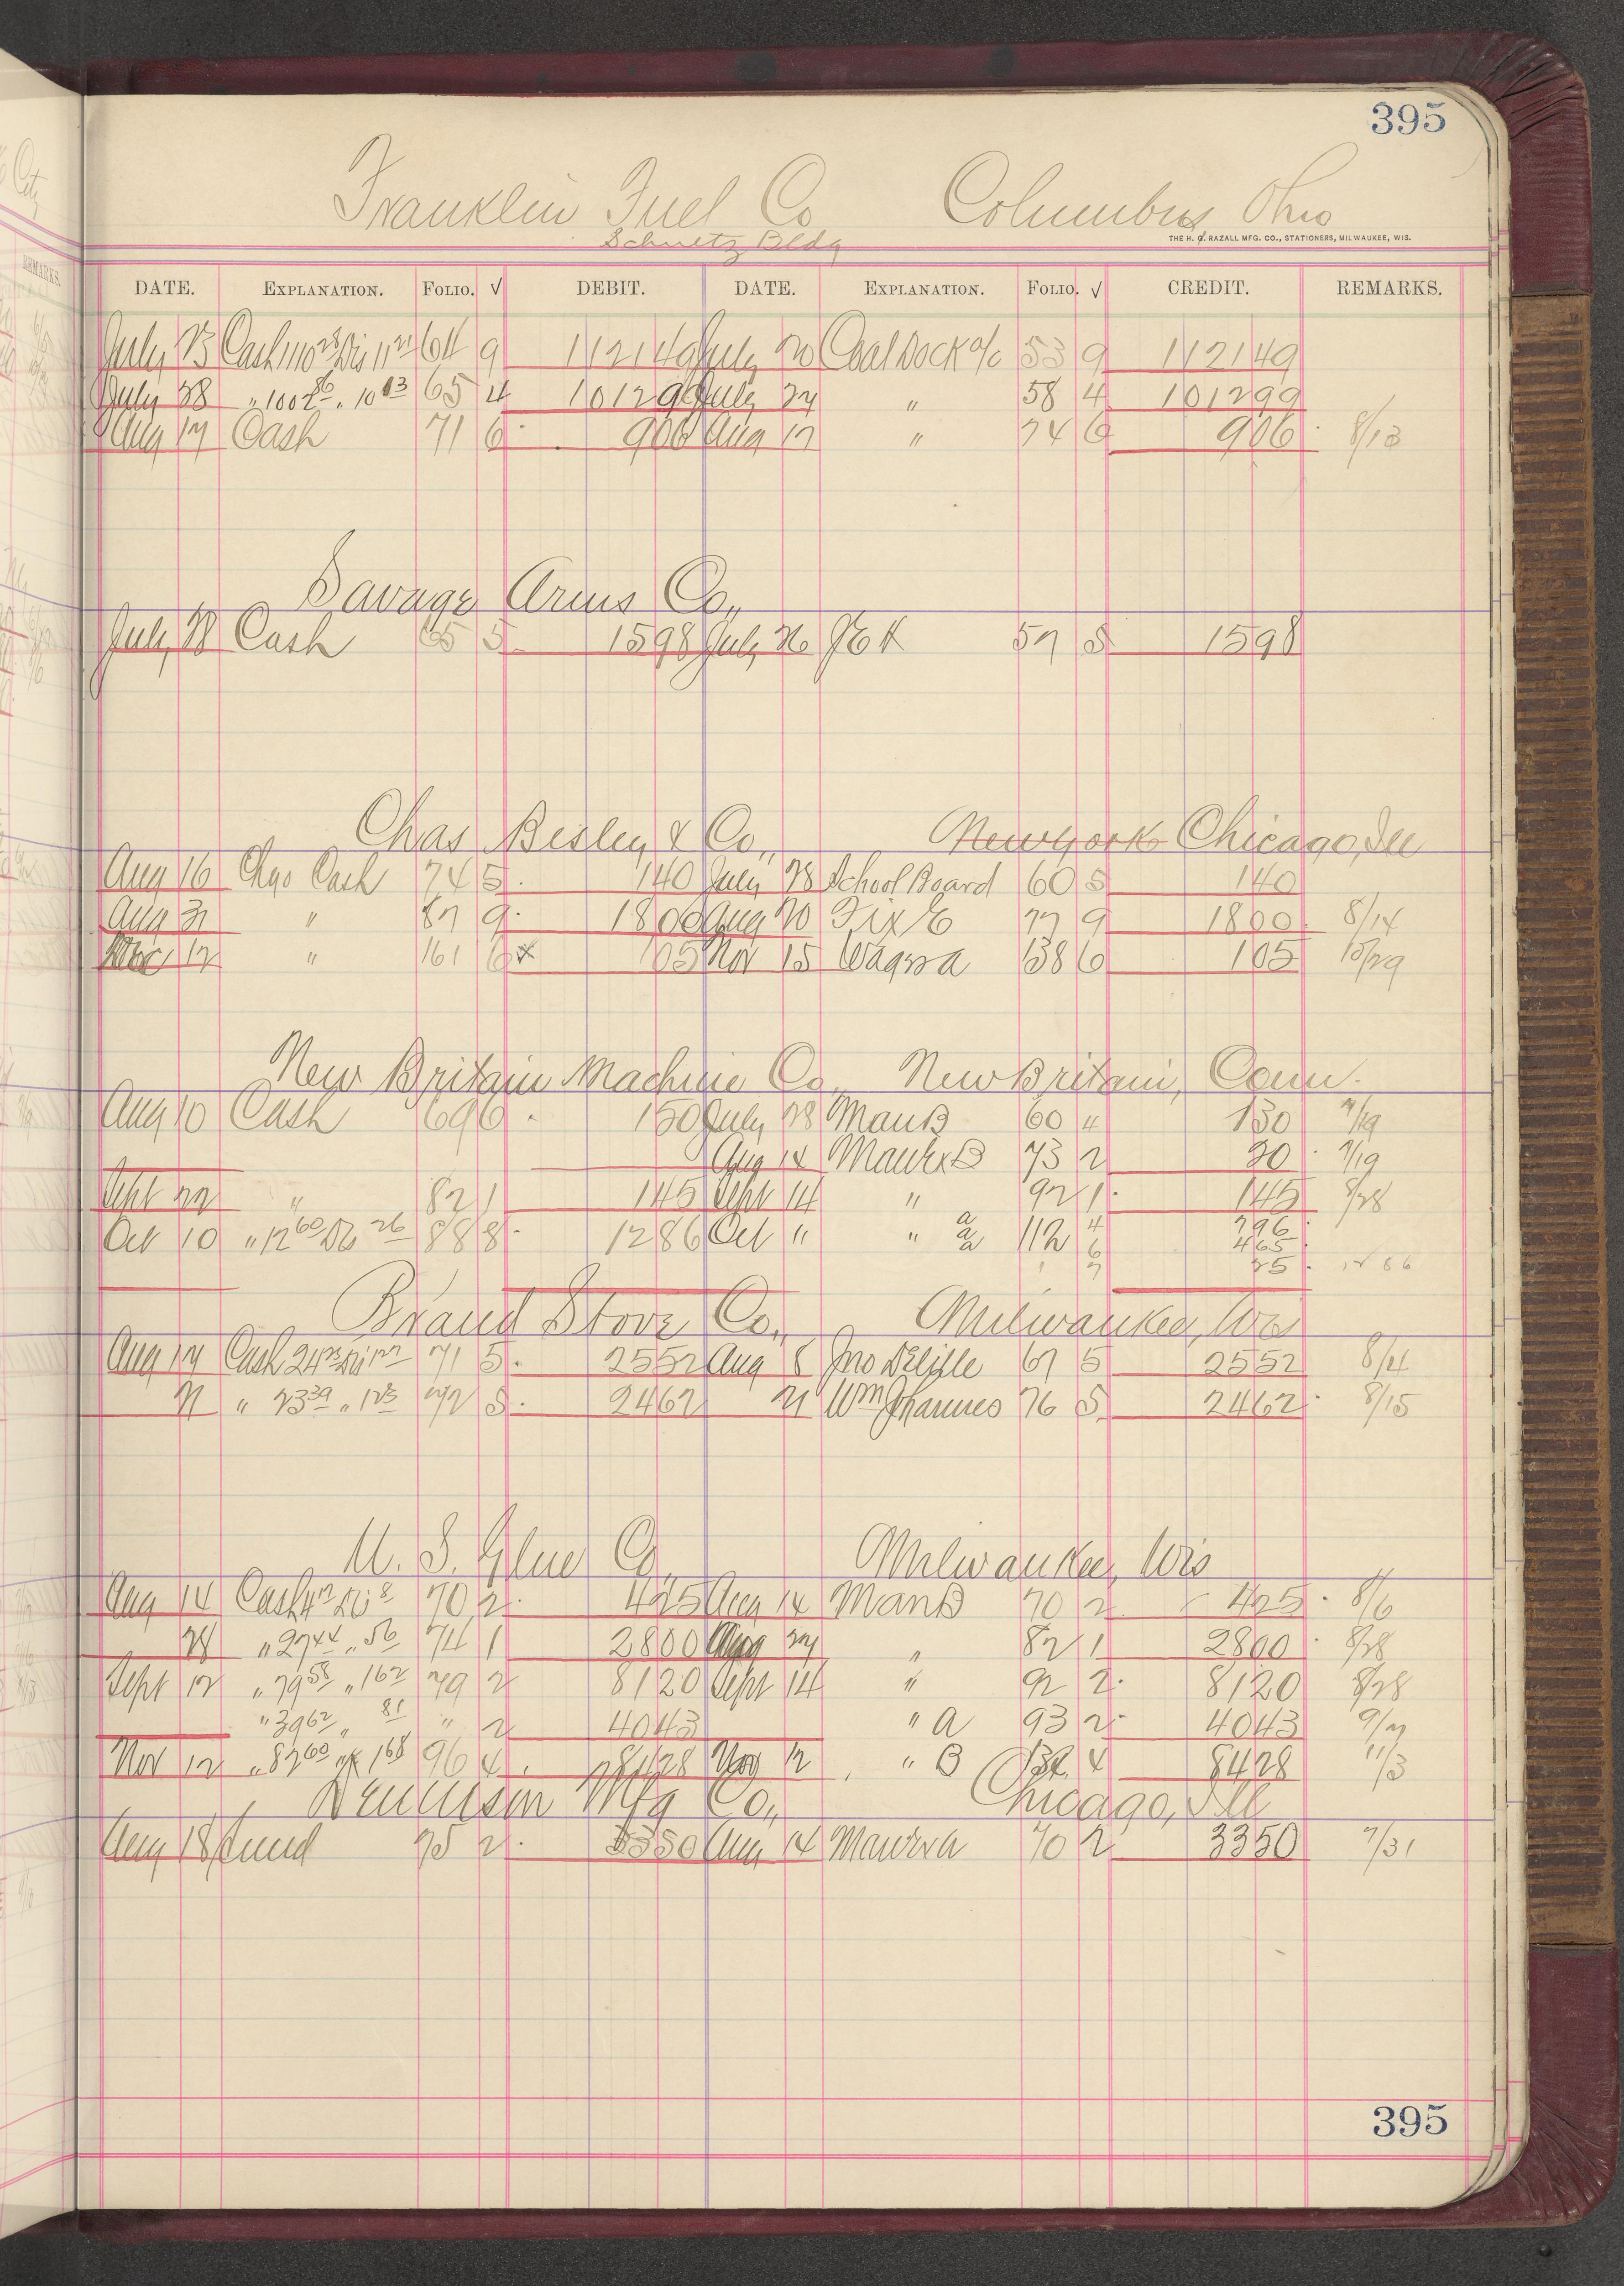 395
Franklin Fuel Co Columbus, Ohio
Schuetz Bldg
THE H. G. RAZALL MFG. CO., STATIONERS, MILWAUKEE, WIS.
DATE. EXPLANATION. FOLIO. √ DEBIT. DATE. EXPLANATION. FOLIO. √ CREDIT. REMARKS.
July 23 Cash 1110 28 Dis 11 21 64 9 1121 49 July 20 Coal Dock a/c 53 9 1121 49
July 28 " 1002 86 " 10 13 65 4 1012 99 July 27 " 58 4 1012 99
Aug 17 Cash 71 6 906 Aug 17 " 74 6 906 8/13
Savage Arms Co.,
July 28 Cash 65 5 1598 July 26 57 5 1598
Chas Besley & Co., New York Chicago, Ill
Aug 16 Chgo Cash 74 5 140 July 28 School Board 60 5 140
Aug 31 " 87 9 1800 Aug 20 Fix E 77 9 1800 8/14
Dec 12 " 161 6 x 105 Nov 15 138 6 105 10/29
New Britain Machine Co., New Britain, Conn.
Aug 10 Cash 69 6 150 July 28 Man B 60 4 130 7/19
Aug 14 73 2 20 7/19
Sept 22 " 82 1 145 Sept 14 " 92 1 145 8/28
Oct 10 " 12 60 Dis 26 88 8 1286 Oct " " a 112 4 796
a 6 465
a 7 25 12 86
Brand Stove Co., Milwaukee, Wis
Aug 17 Cash 24 25 Dis 1 27 71 5 2552 Aug 8 Jno Delille 67 5 2552 8/4
21 " 23 39 " 1 23 72 5 2462 21 Wm Johannes 76 5 2462 8/15
U. S. Glue Co. Milwaukee, Wis
Aug 14 Cash 4 17 Dis 8 70 2 425 Aug 14 Man B 70 2 425 8/6
28 " 27 44 " 56 74 1 2800 Aug 27 " 82 1 2800 8/28
Sept 12 " 79 58 " 1 62 79 2 8120 Sept 14 " 92 2 8120 8/28
" 39 62 " 81 " 2 4043 " a 93 2 4043 9/7
Nov 12 " 82 60 " 1 68 96 4 8428 Nov 12 " B 4 8428 11/3
Dennison Mfg Co., Chicago, Ill
Aug 18 75 2 3350 Aug 14 70 2 3350 7/31
395